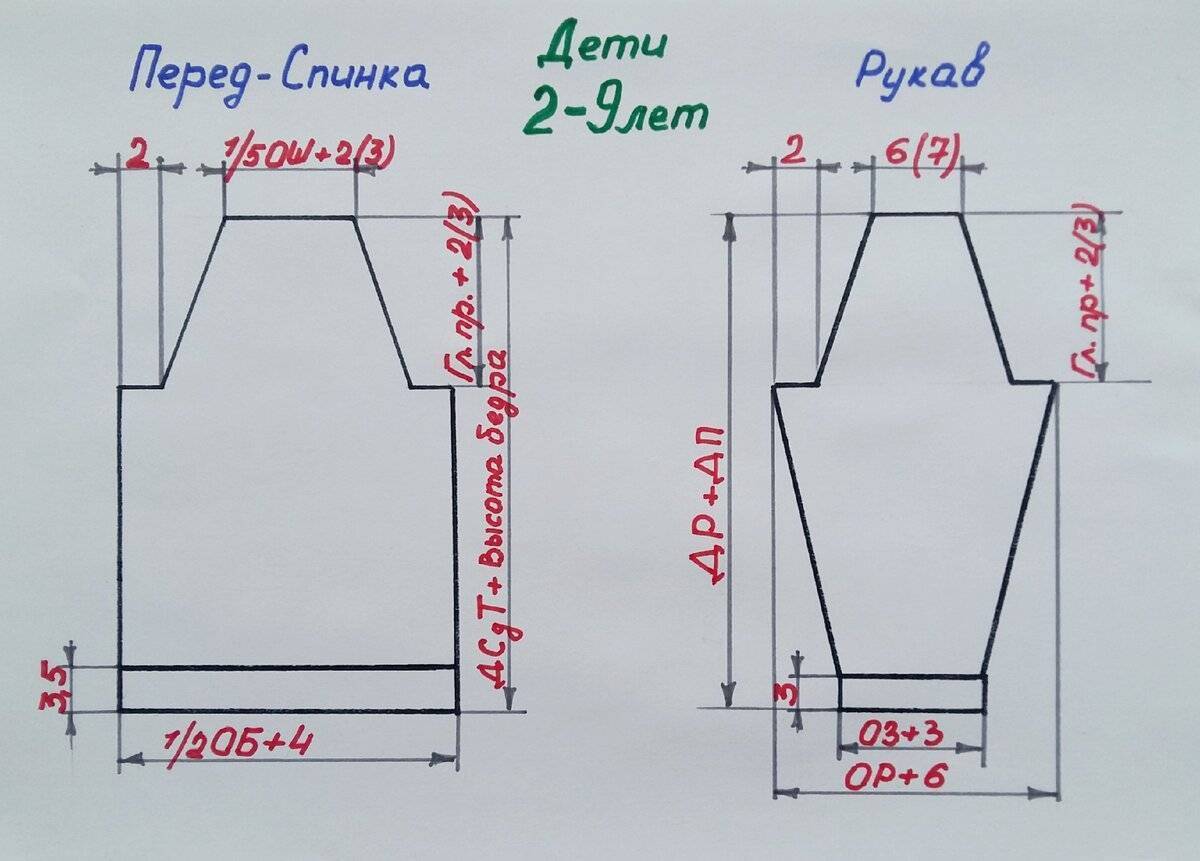 Дети
2-9лет
Перед-Спинка
Рукав
2
1/5ОШ+2(3)
Гл.пр.+2(3)
ДСдТ+Высота бедра
3,5
1/2ОБ+4
2
6(7)
Гл.пр+2(3)
ДР+ДП
3
ОЗ+3
ОР+6